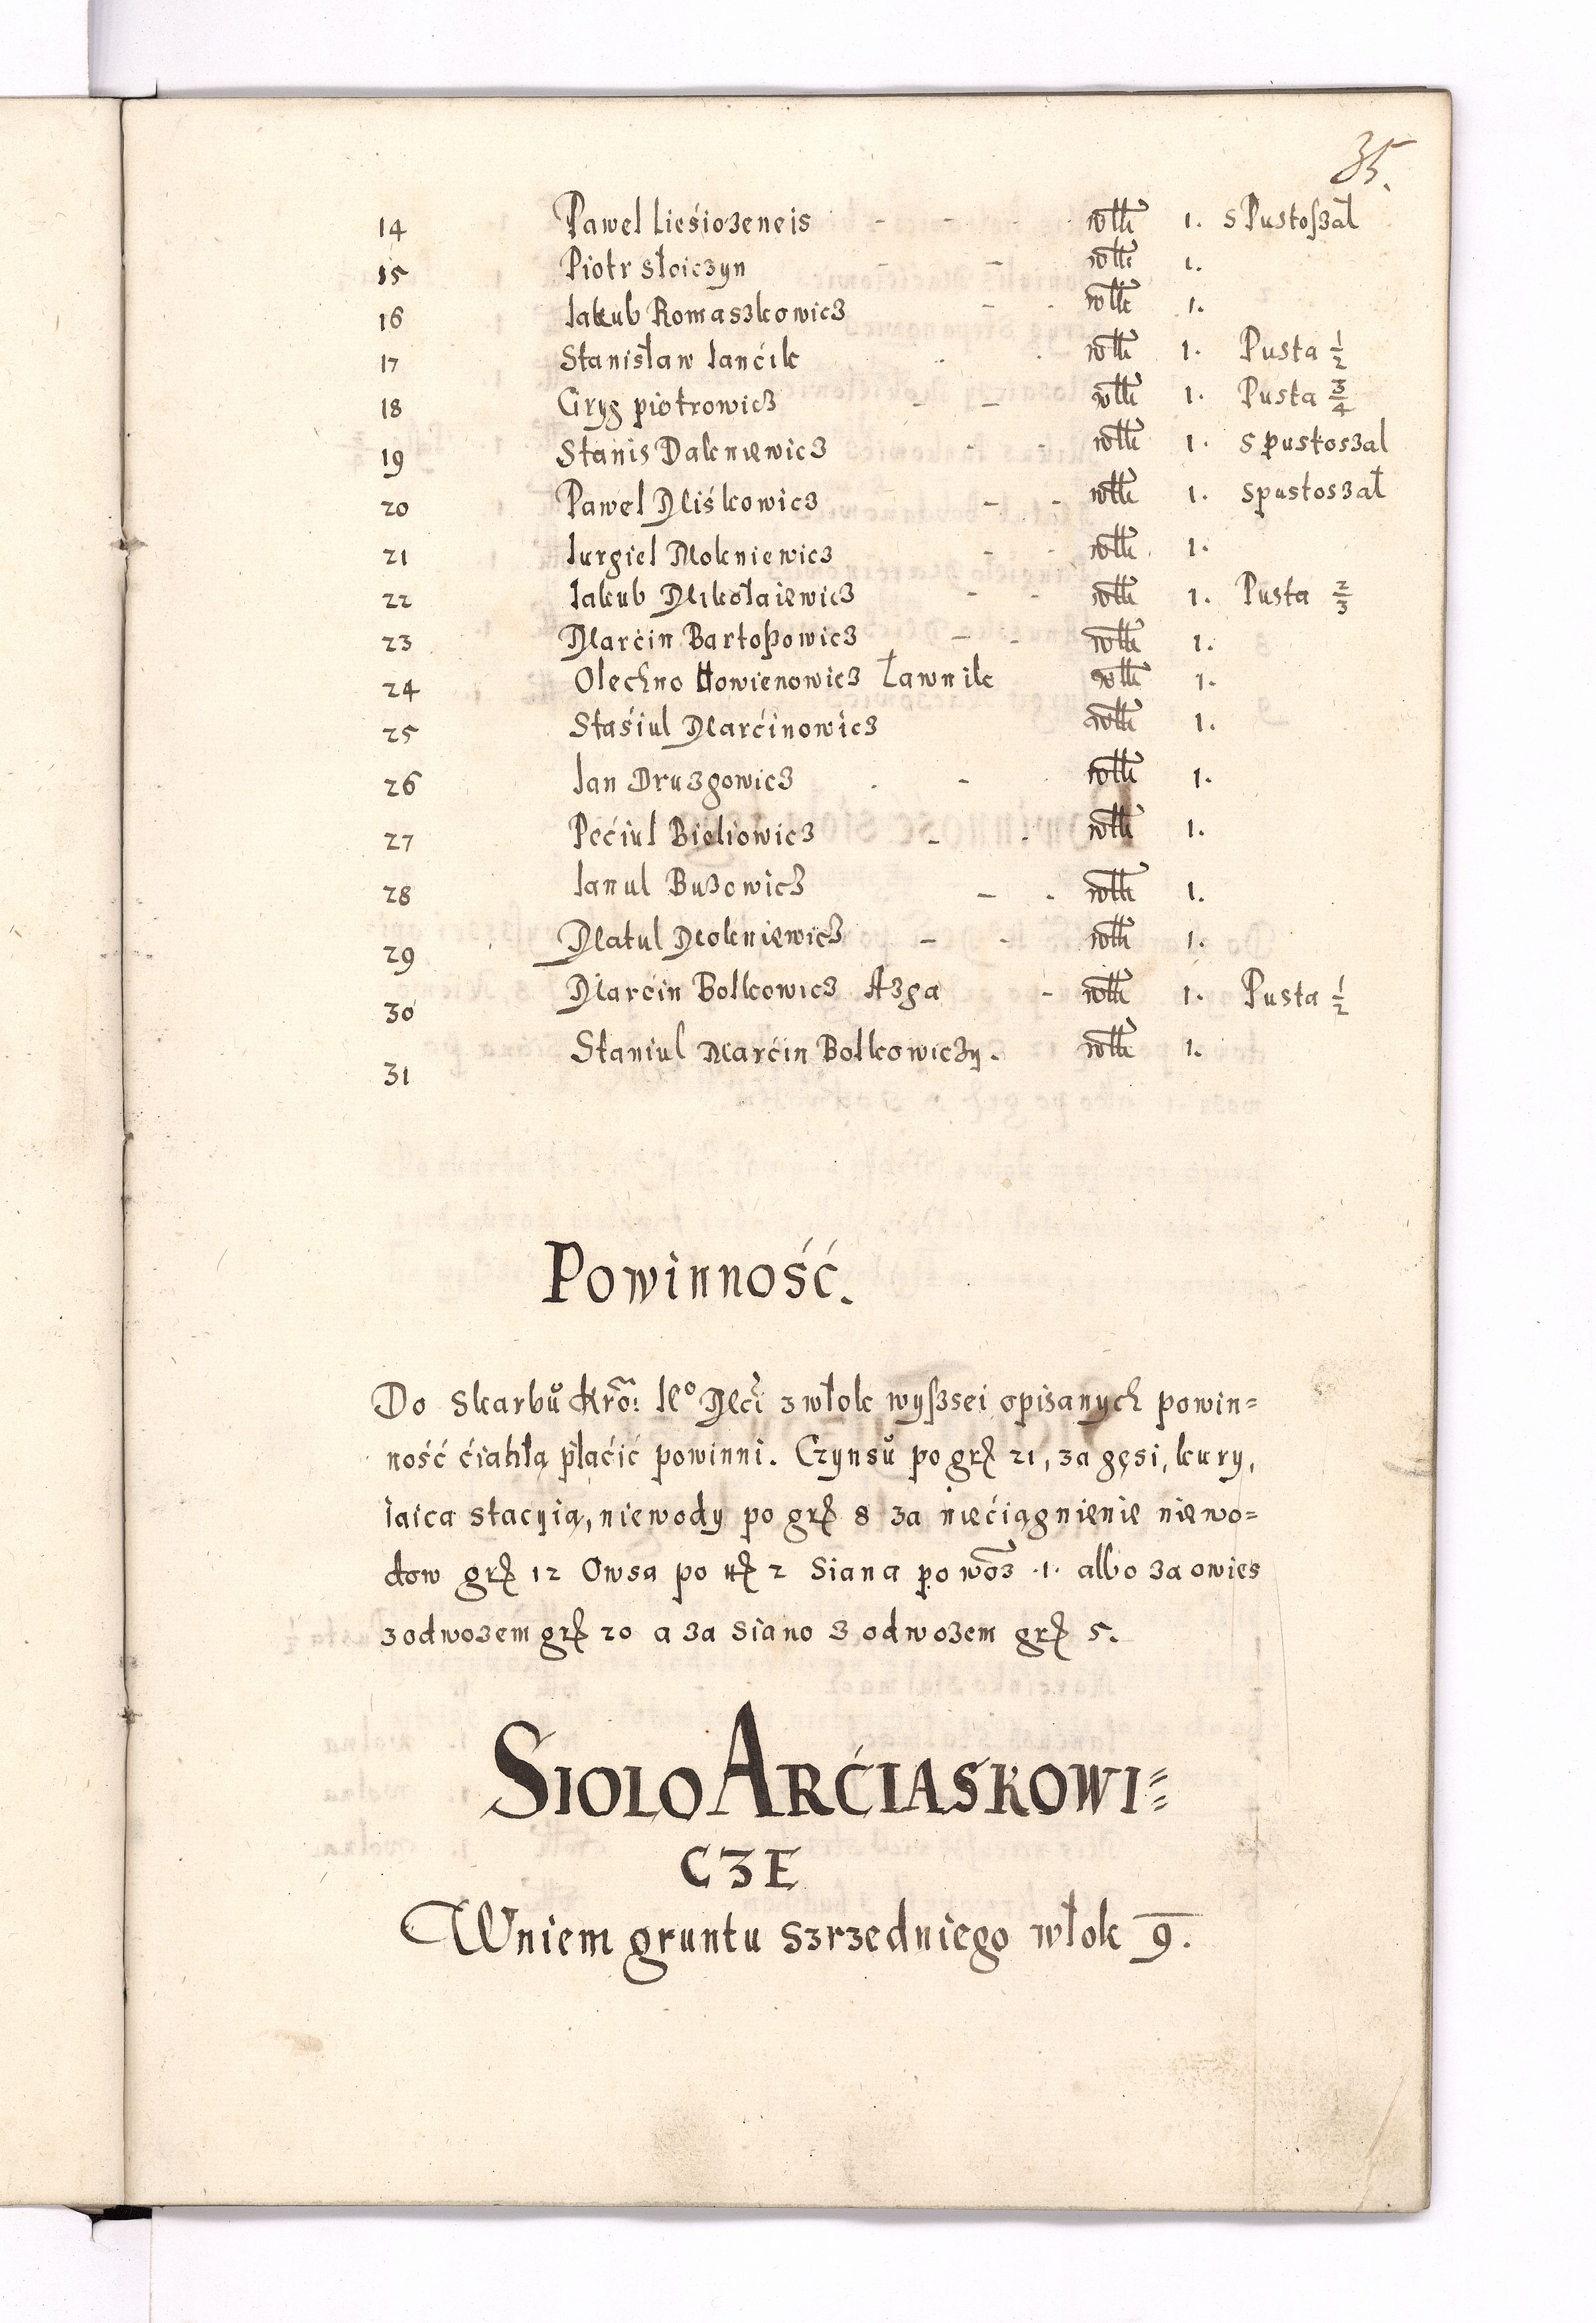 35.
14 Pawel Lieśiozeneis - - włk 1. sPustoszał
15 Piotr słoiczyn - - włk 1.
16 Iakub Romaszkowicz - - włk 1.
17 Stanisław Ianćik włk 1. Pusta 1/2
18 Gryg piotrowicz - - włk 1. Pusta 3/4
19 Stanis Dakniewicz - - włk 1. spustoszal
20 Pawel Miśkowicz - - włk 1. spustoszał
21 Iurgiel Mokniewicz - - włk 1.
22 Iakub Mikołaiewicz - - włk 1. Pusta 2/3
23 Marćin Bartoszowicz - - włk 1.
24 Olechno Howienowicz Ławnik włk 1.
25 Staśiul Marćinowicz włk 1.
26 Ian Druzgowicz - włk 1.
27 Pećiul Bieliowicz - - włk 1.
28 Ianul Buzowicz - - włk 1.
29 Matul Mokniewicz - - włk 1.
30 Marćin Bolkowicz Azga - włk 1. Pusta 1/2
31 Staniul Marćin Bolkowiczy. włk 1.
Powinność.
Do Skarbů Kro: Ie° Mći z włok wyszsei opisanych powin=
ność ćiahłą płaćić powinni. Czynsů po gr 21, za gęsi, kury,
iaica stacyią, niewody po gr 8 za niećiągnienie niewo=
dow gr 12 Owsa po 2 Siana po woz .1. albo za owies
z odwozem gr 20 a za Siano z odwozem gr 5.
SIOLO ARĆIASKOWI=
CZE
Wniem gruntu szrzedniego włok 9.